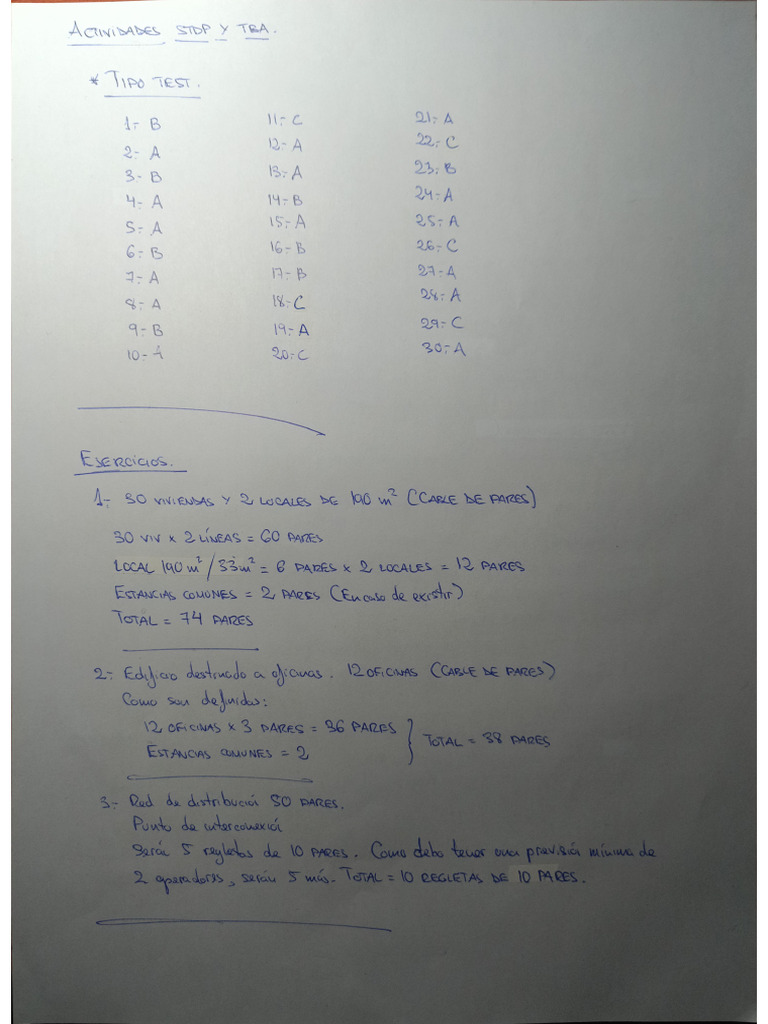 ACTIVIDADES STDP Y TBA.
* TIPO TEST.
1.- B
2.- A
3.- B
4.- A
5.- A
6.- B
7.- A
8.- A
9.- B
10.- A
11.- C
12.- A
13.- A
14.- B
15.- A
16.- B
17.- B
18.- C
19.- A
20.- C
21.- A
22.- C
23.- B
24.- A
25.- A
26.- C
27.- A
28.- A
29.- C
30.- A
EJERCICIOS.
1.- 30 VIVIENDAS Y 2 LOCALES DE 190 m² (CABLE DE PARES)
30 VIV x 2 LÍNEAS = 60 PARES
LOCAL 190 m² / 33 m² = 6 PARES x 2 LOCALES = 12 PARES
ESTANCIAS COMUNES = 2 PARES (En caso de existir)
TOTAL = 74 PARES
2.- Edificio destinado a oficinas. 12 OFICINAS (CABLE DE PARES)
Como son definidas:
12 OFICINAS x 3 PARES = 36 PARES
ESTANCIAS COMUNES = 2
} TOTAL = 38 PARES
3.- Red de distribución 50 PARES.
Punto de interconexión
Serán 5 regletas de 10 PARES. Como debo tener una previsión mínima de
2 operadores, serán 5 más. TOTAL = 10 REGLETAS DE 10 PARES.